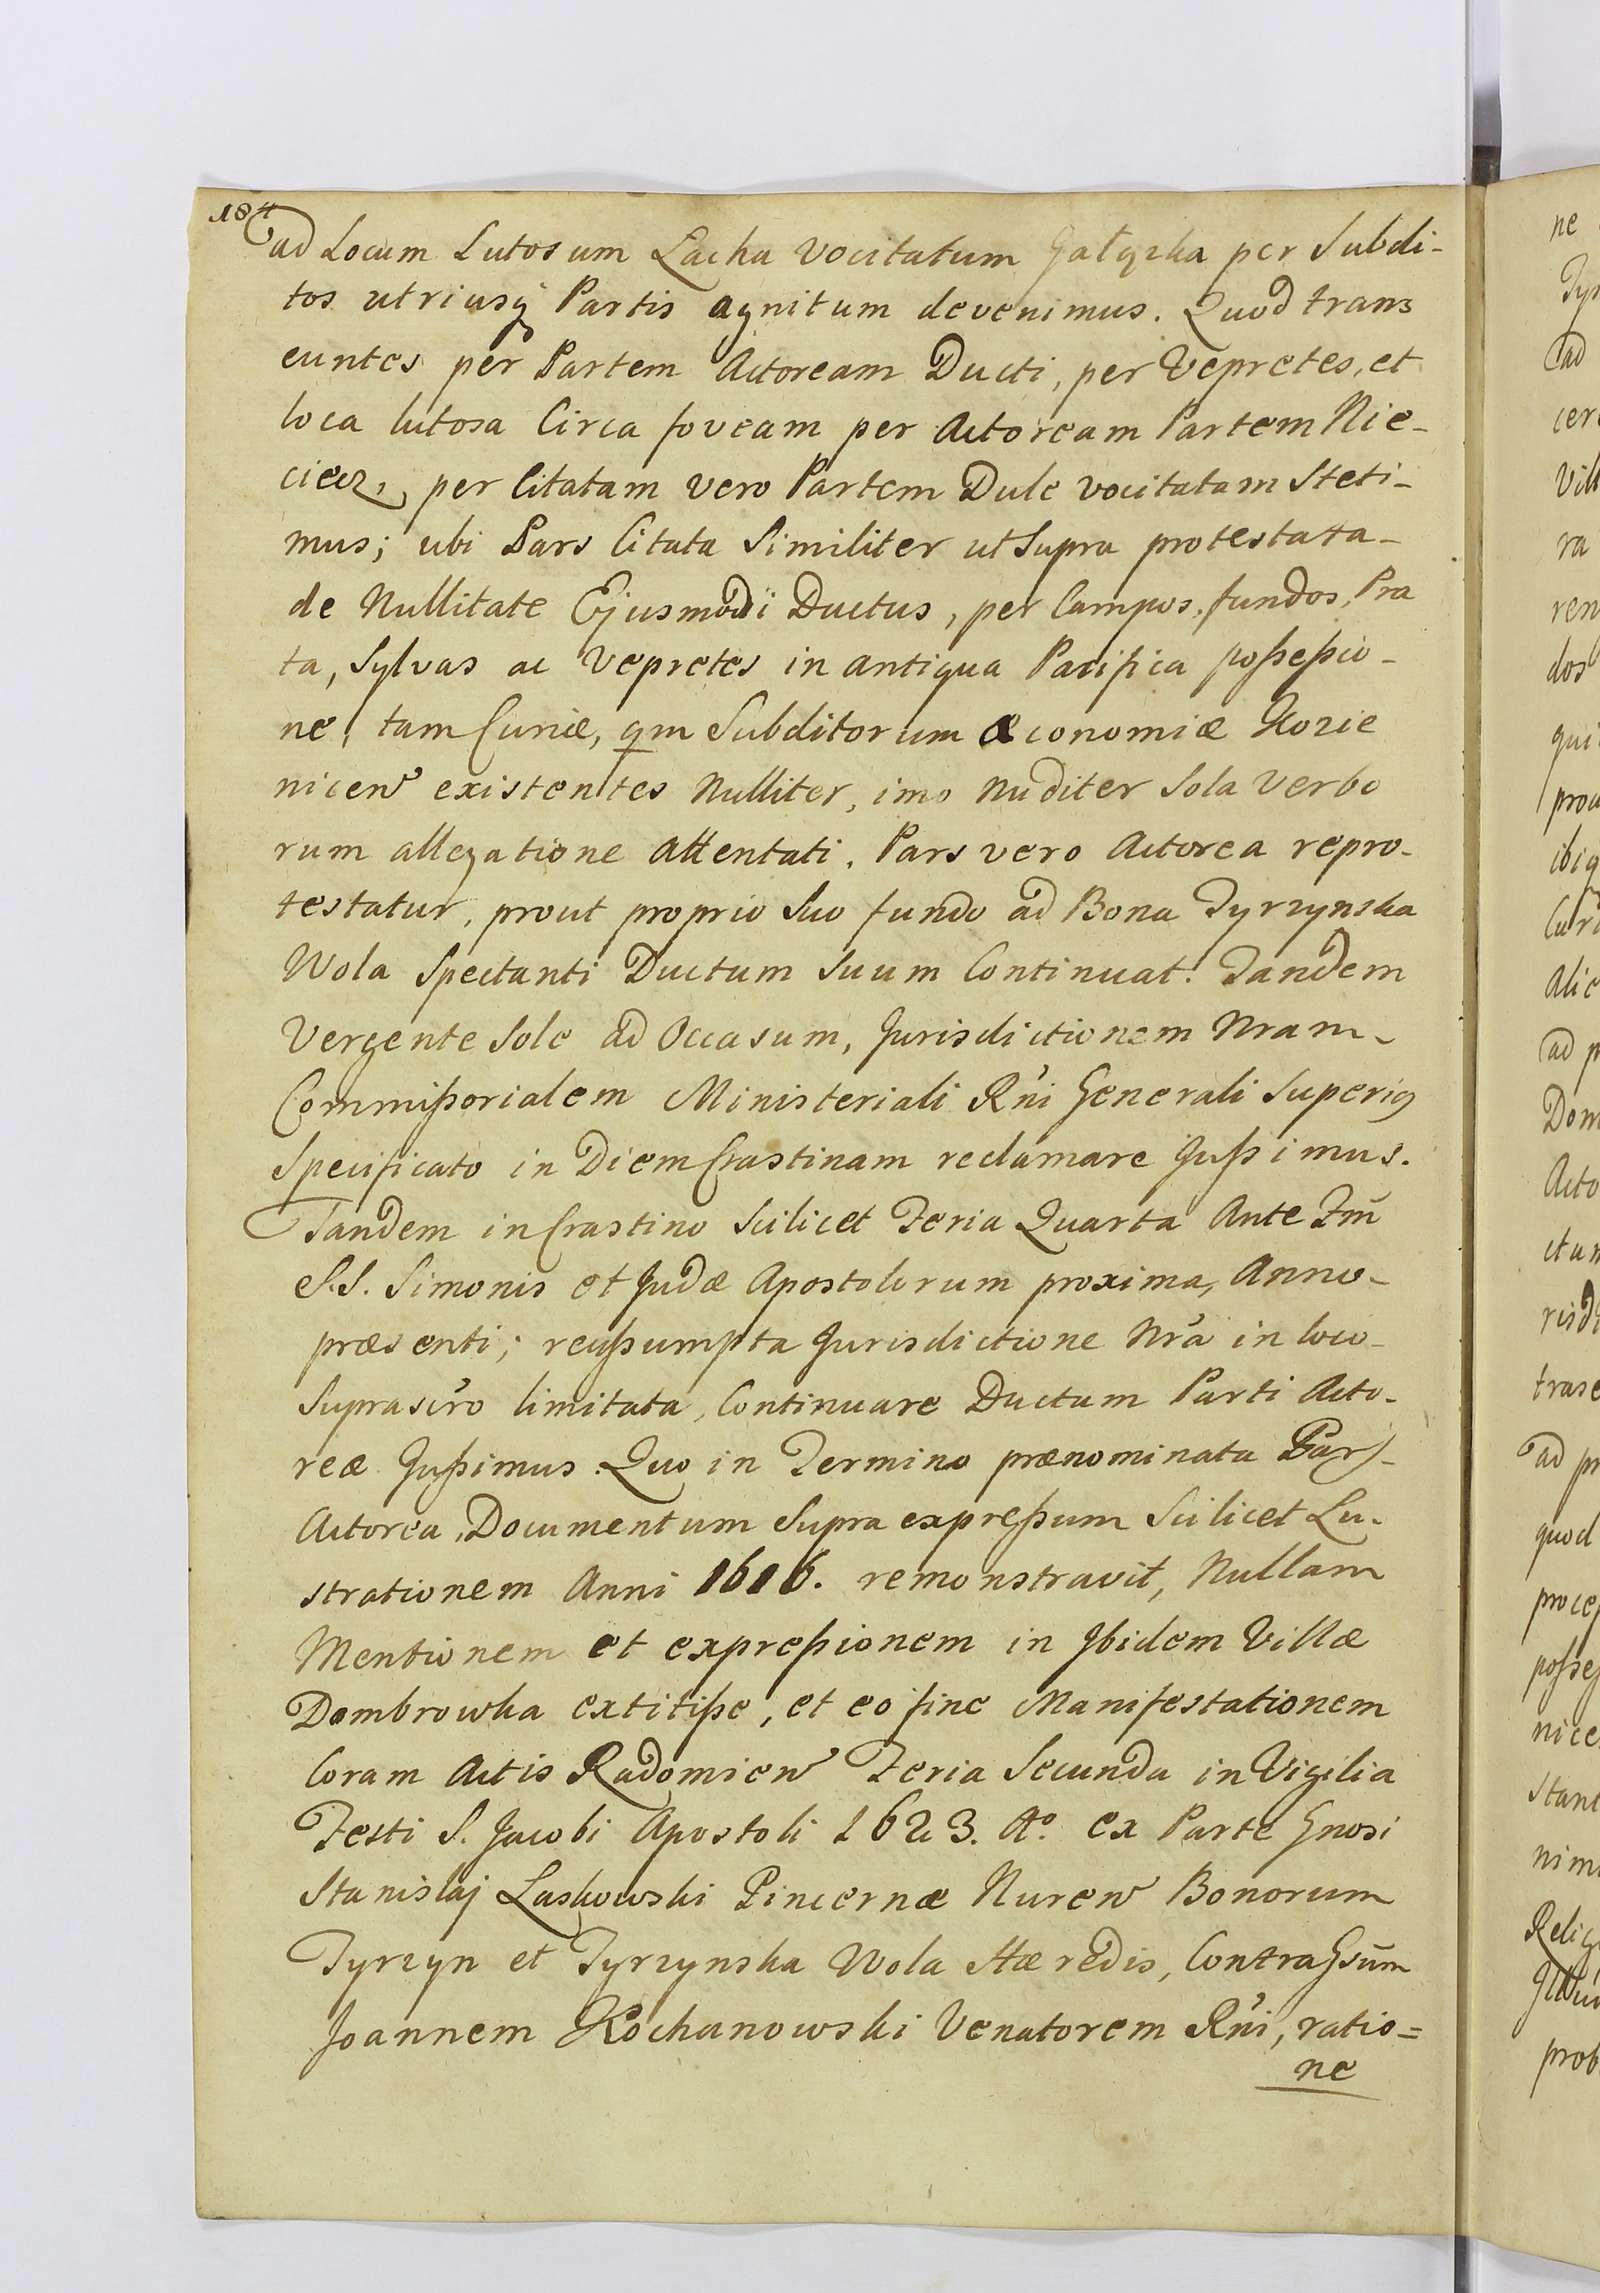 184
ad Locum Lutosum Lacha Vocitatum Gałązka per Subdi-
tos utriusq Partis agnitum devenimus. Quod trans
euntes per Partem Actoream Ducti, per Vepretes, et
loca lutosa Circa foveam per Actoream Partem Nie-
ciecz, per Citatam vero Partem Dule vocitatam Steti-
mus; ubi Pars Citata Similiter ut Supra protestata-
de Nullitate Ejusmodi Ductus, per Campos, fundos, Pra
ta, Sylvas ac Vepretes in antiqua Pacifica poßeßio-
ne, tam Curiæ, qm Subditorum Œconomiæ Kozie
nicen existentes Nulliter, imo Nuditer Sola Verbo
rum allegatione attentati. Pars vero Actorea repro-
testatur, prout proprio Suo fundo ad Bona Tyrzynska
Wola Spectanti Ductum Suum Continuat. Tandem
Vergente Sole ad Occasum, Jurisdictionem Nram-
Commißorialem Ministeriali Rñi Generali Superiq
Specificato in Diem Crastinam reclamare Jußimus.
Tandem in Crastino Scilicet Feria Quarta Ante Fm̃
S.S. Simonis et Judæ Apostolorum proxima, Anno-
præsenti; reaßumpta Jurisdictione Nrã in loco-
Suprascro limitata, Continuare Ductum Parti Acto-
reæ Jußimus. Quo in Termino prænominata Pars-
Actorea, Documentum Supra expreßum Scilicet Lu-
strationem Anni 1616. remonstravit, Nullam
Mentionem et expreßionem in Ibidem Villæ
Dombrowka extitiße, et eo fine Manifestationem
Coram Actis Radomien Feria Secunda in Vigilia
Festi S. Jacobi Apostoli 1623. Aº. ex Parte Gnosi
Stanislaj Laskowski Pincernæ Nuren Bonorum
Tyrzyn et Tyrzynska Wola Hæredis, Contra Gsum̃
Joannem Kochanowski Venatorem Rñi, ratio=
ne